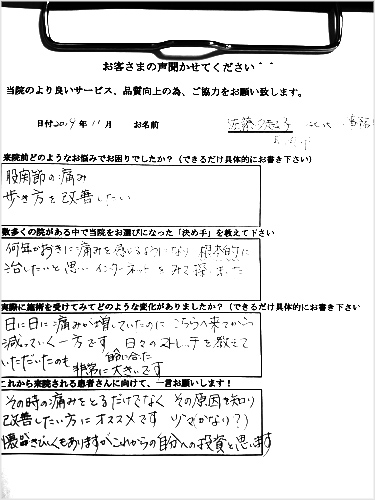 お客さまの声聞かせてください＾＾
当院のより良いサービス、品質向上の為、ご協力をお願い致します。
日付2019年11月 お名前 佐藤
来院前どのようなお悩みでお困りでしたか？（できるだけ具体的にお書き下さい）
股関節の痛み
歩き方を改善したい
数多くの院がある中で当院をお選びになった「決め手」を教えて下さい
何年かおきに痛みを感じるようになり 根本的に
治したいと思い インターネットをみて探しました
実際に施術を受けてみてどのような変化がありましたか？（できるだけ具体的にお書き下さい
日に日に痛みが増していたのに こちらへ来てから
減っていく一方です 日々のストレッチを教えて
いただいたのも 非常に大きいです
これから来院される患者さんに向けて、一言お願いします！
その時の痛みをとるだけでなく その原因を知り
改善したい方にオススメです
もありますがこれからの自分への投資と思います